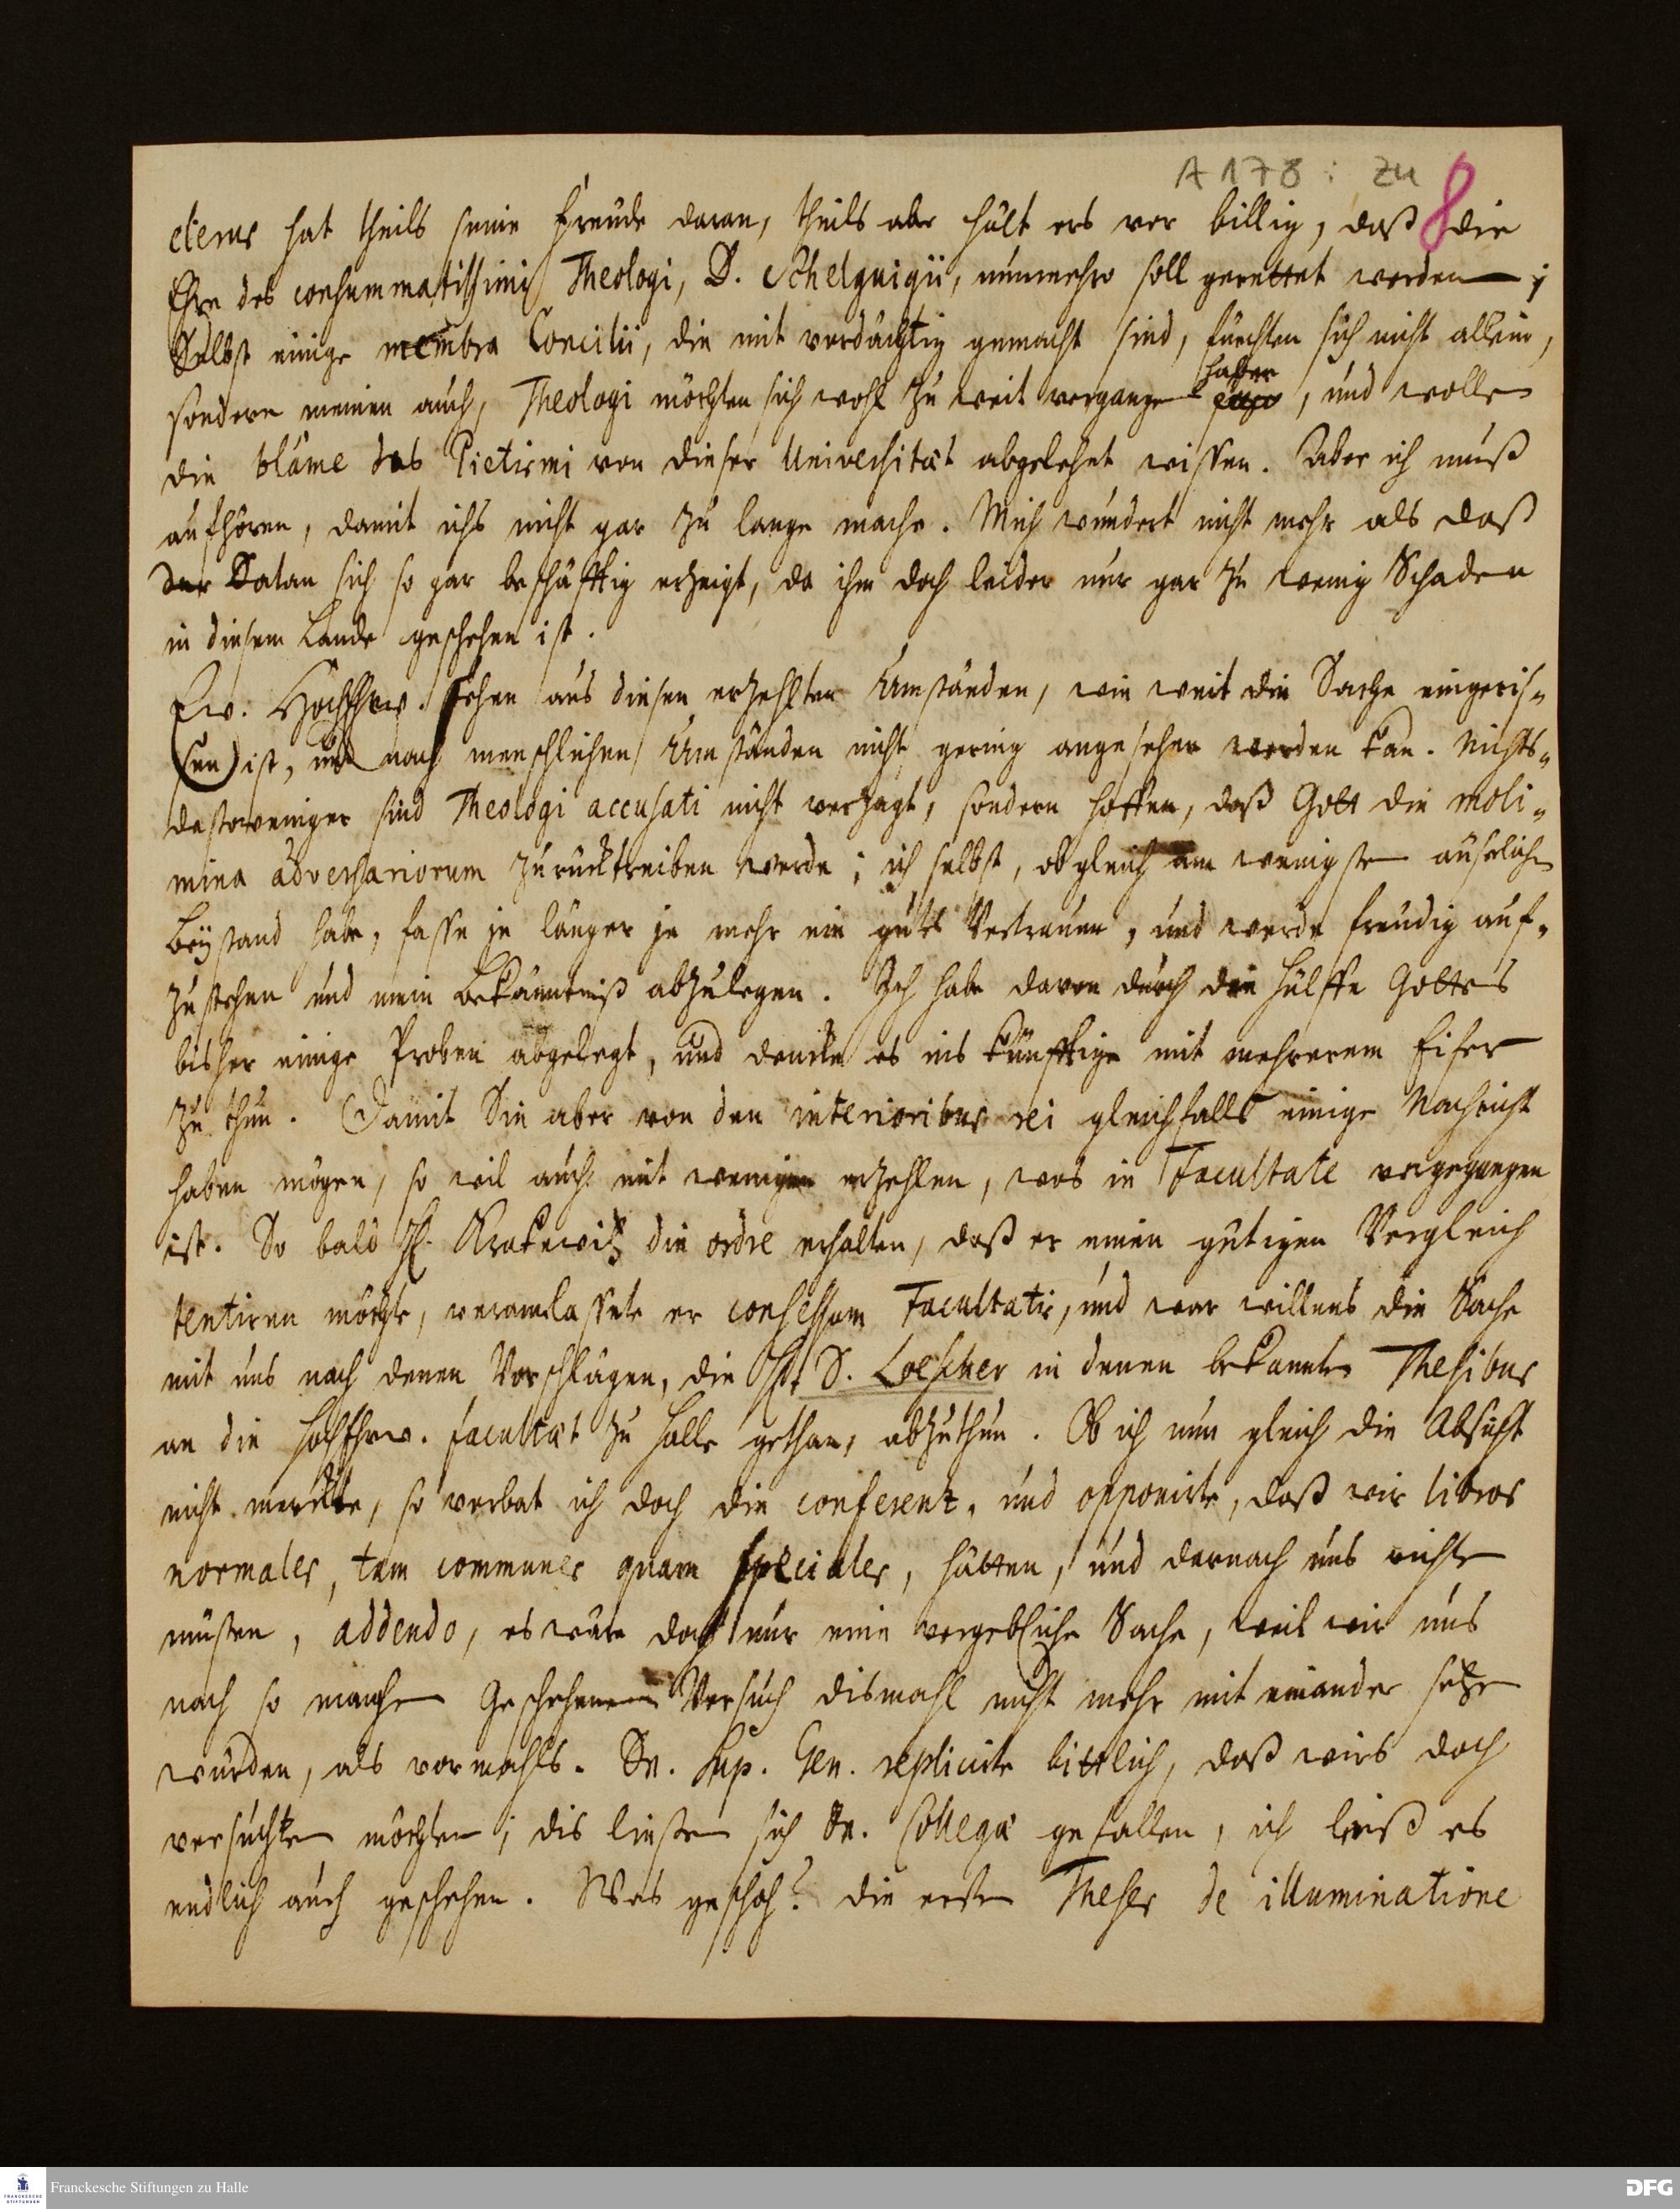 A 178 : zu 8
clerus hat theils seine Freude daran, theils aber hält ers vor billig, daß die
Ehre des consummatissimi Theologi, D. Schelguigii, nunmehro soll gerettet werden;
Selbst einige membra Concilii, die mit verdächtig gemacht sind, fürchten sich nicht allein,
sondern meinen auch, Theologi möchten sich wohl zu weit vergangen haben, und wollen
die blâme des Pietismi von dieser Universität abgelehnt wissen. Aber ich muß
aufhören, damit ichs nicht gar zu lange mache. Mich wundert nicht mehr als daß
der Satan sich so gar beschäfftig erzeigt, da ihm doch leider nur gar zu wenig Schaden
in diesem Lande geschehen ist.
Ew. HochEhrw. sehen aus diesen erzehlten Umständen, wie weit die Sache eingeris-
sen ist, und nach menschlichen Umständen nicht gering angesehen werden kan. Nichts-
destoweniger sind Theologi accusati nicht verzagt, sondern hoffen, daß Gott die moli-
mina adversariorum zurücktreiben werde; ich selbst, obgleich am wenigsten äuserlichen
Beystand habe, fasse je länger je mehr ein gutes Vertrauen, und werde freudig auf-
zustehen und mein Bekänntniß abzulegen. Ich habe davon durch die Hülffe Gottes
bisher einige Proben abgelegt, und dencke es ins künfftige mit mehrerem Eifer
zu thun. Damit Sie aber von den interioribus rei gleichfalls einige Nachricht
haben mögen, so wil auch mit wenigen erzehlen, was in Facultate vorgegangen
ist. So bald H. Krakewitz die ordre erhalten, daß er einen gütigen Vergleich
tentiren möchte, veranlassete er consessum Facultatis, und war willens die Sache
mit uns nach denen Vorschlägen, die H. D. Loescher in denen bekannten Thesibus
an die HochEhrw. Facultät zu Halle gethan, abzuthun. Ob ich nun gleich die Absicht
nicht merckte, so verbat ich doch die conferenz, und opponirte, daß wir libros
normales, tam communes quam speciales, hätten, und darnach uns richten
müsten, addendo, es wäre doch nur eine vergebliche Sache, weil wir uns
nach so manchen Geschehenen Versuch dismahl nicht mehr mit einander setzen
würden, als vormahls. Dn. Sup. Gen. replicirte bittlich, daß wirs doch
versuchten möchten; dis ließen sich Dn. Collegæ gefallen, ich ließ es
endlich auch geschehen. Was geschah? die ersten Theses de illuminatione
Franckesche Stiftungen zu Halle
DFG